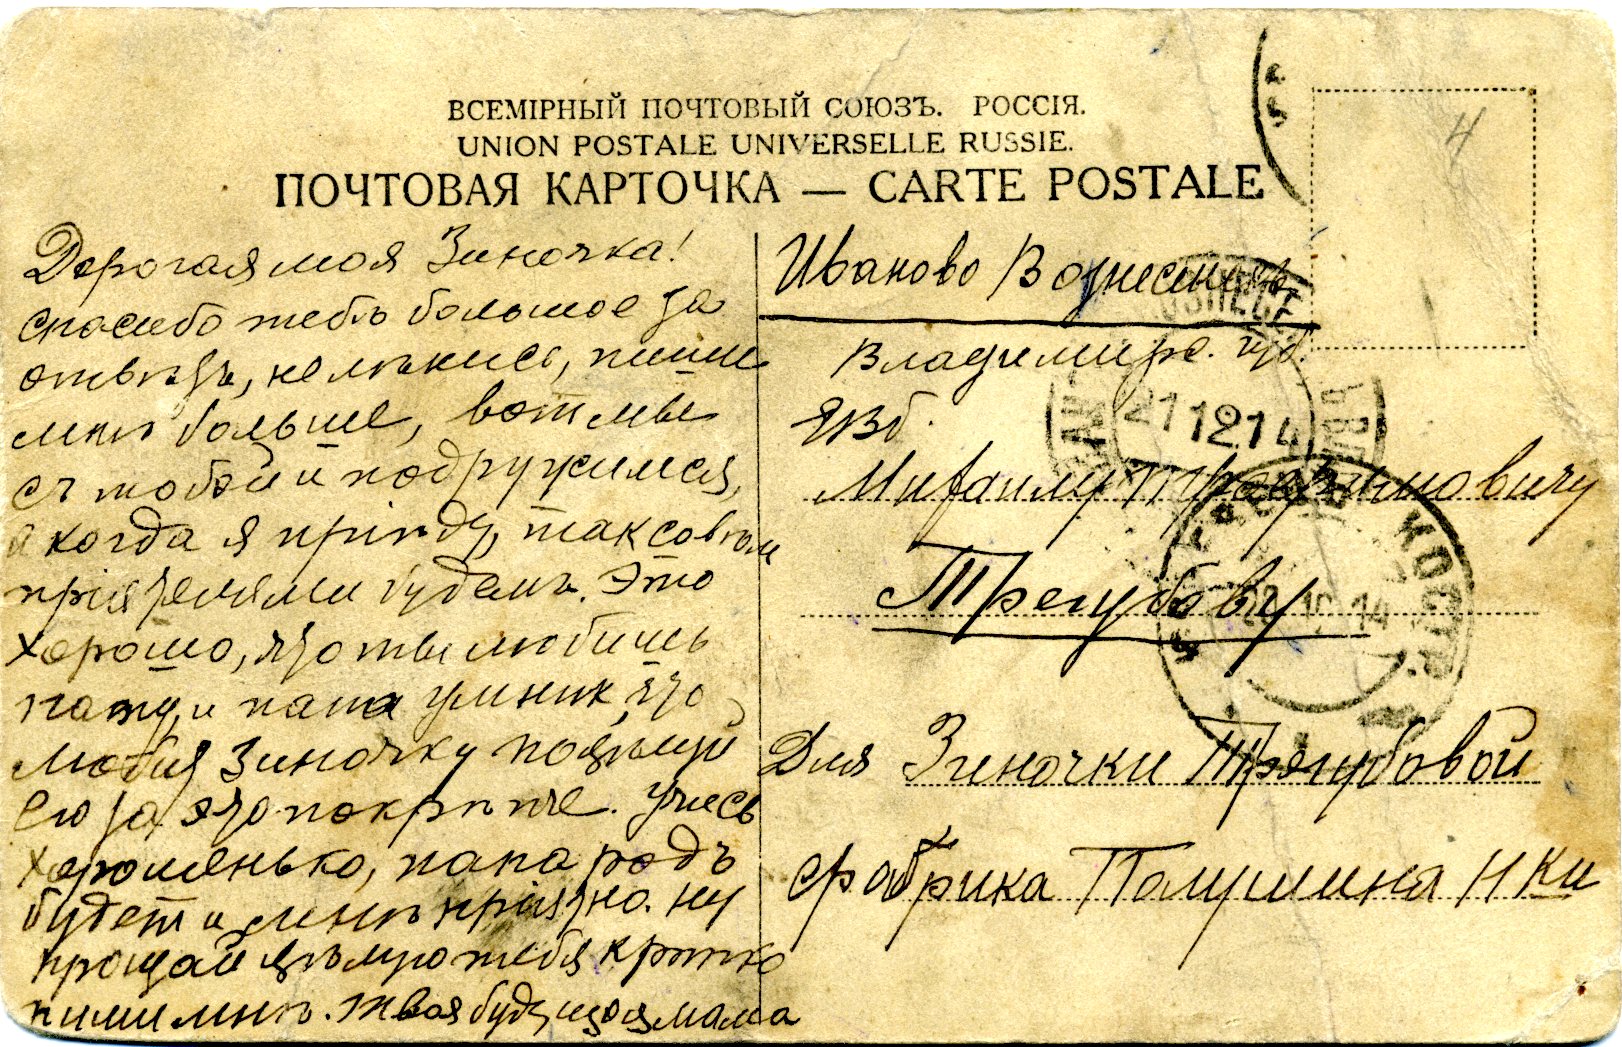 ВСЕМІРНЫЙ ПОЧТОВЫЙ СОЮЗЪ. РОССІЯ.
UNION POSTALE UNIVERSELLE RUSSIE.
ПОЧТОВАЯ КАРТОЧКА — CARTE POSTALE
4
Дорогая моя Зиночка!
спасибо тебѣ большое за
отвѣтъ, не лѣнись, пиши
мнѣ больше, вотъ мы
съ тобой и подружимся,
а когда я пріѣду, так совсем
пріятелями будемъ. Это
хорошо, что ты любишь
папу, и папа умник что
любит Зиночку поцѣлуй
его за это покрѣпче. Учись
хорошенько, папа радъ
будет и мнѣ пріятно. ну
прощай цѣлую тебя крѣпко
пиши мнѣ. Твоя будущая мама
Иваново Вознесенскъ
Владимирс. губ.
ЯВб.
Михаилу Трофимовичу
Трегубову
Для Зиночки Трегубовой
фабрика Полушина Н Ки
21 12 14
КОСТР.